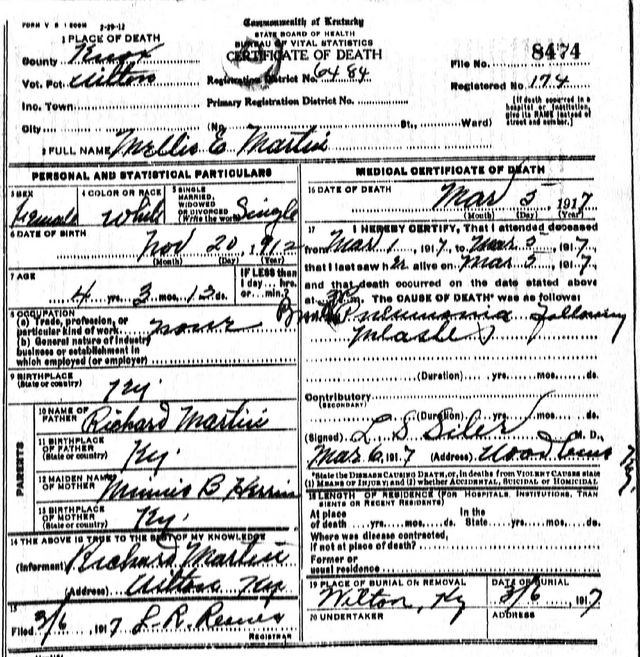 FORM V. S. 1 500M 3-29-12
Commonwealth of Kentucky
STATE BOARD OF HEALTH
BUREAU OF VITAL STATISTICS
CERTIFICATE OF DEATH
1 PLACE OF DEATH
County Knox
Vot. Pct Wilton
Inc. Town
City (No St., Ward)
Registration District No. 6484
Primary Registration District No.
File No. 8474
Registered No. 174
[If death occurred in a hospital or institution, give its NAME instead of street and number.]
2 FULL NAME Nellie E Martin
PERSONAL AND STATISTICAL PARTICULARS
3 SEX Female
4 COLOR OR RACE White
5 SINGLE MARRIED, WIDOWED OR DIVORCED (Write the word) Single
6 DATE OF BIRTH
Nov 20, 1912
(Month) (Day) (Year)
7 AGE
4 yrs. 3 mos. 13 ds.
IF LESS than 1 day... hrs. or... min.?
8 OCCUPATION
(a) Trade, profession, or particular kind of work none
(b) General nature of industry business or establishment in which employed (or employer)
9 BIRTHPLACE (State or country) Ky.
PARENTS
10 NAME OF FATHER Richard Martin
11 BIRTHPLACE OF FATHER (State or country) Ky.
12 MAIDEN NAME OF MOTHER Minnie B Herrin
13 BIRTHPLACE OF MOTHER (State or country) Ky.
14 THE ABOVE IS TRUE TO THE BEST OF MY KNOWLEDGE
(Informant) Richard Martin
(Address) Wilton Ky
15
Filed 3/6, 1917 L. R.
REGISTRAR
MEDICAL CERTIFICATE OF DEATH
16 DATE OF DEATH
Mar 5 1917
(Month) (Day) (Year)
17 I HEREBY CERTIFY, That I attended deceased
from Mar 1, 1917, to Mar 5, 1917,
that I last saw her alive on Mar 5, 1917,
and that death occurred on the date stated above
at m. The CAUSE OF DEATH* was as follows:
Pneumonia following
(Duration) yrs. mos. ds.
Contributory (SECONDARY)
(Duration) yrs. mos. ds.
(Signed) L S Siler M. D.
Mar 6, 1917 (Address)
*State the DISEASE CAUSING DEATH, or, in deaths from VIOLENT CAUSES state (1) MEANS OF INJURY; and (2) whether ACCIDENTAL, SUICIDAL or HOMICIDAL.
18 LENGTH OF RESIDENCE (FOR HOSPITALS, INSTITUTIONS, TRANSIENTS OR RECENT RESIDENTS)
At place of death yrs. mos. ds. In the State yrs. mos. ds.
Where was disease contracted,
if not at place of death?
Former or usual residence
19 PLACE OF BURIAL OR REMOVAL Wilton, Ky
DATE OF BURIAL 3/6, 1917
20 UNDERTAKER
ADDRESS